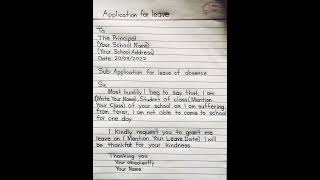 Application for leave
To
The Principal
(Your School Name)
(Your School Address)
Date: 20/09/2022
Sub: Application for leave of absence
Sir,
Most humbly I beg to say that, I am
(Write Your Name), Student of class (Mention
Your Class) of your school as I am suffering
from fever, I am not able to come to school
for one day.
I kindly request you to grant me
leave on (Mention Your Leave Date) I will
be thankful for your kindness.
Thanking you
Your obediently
Your Name